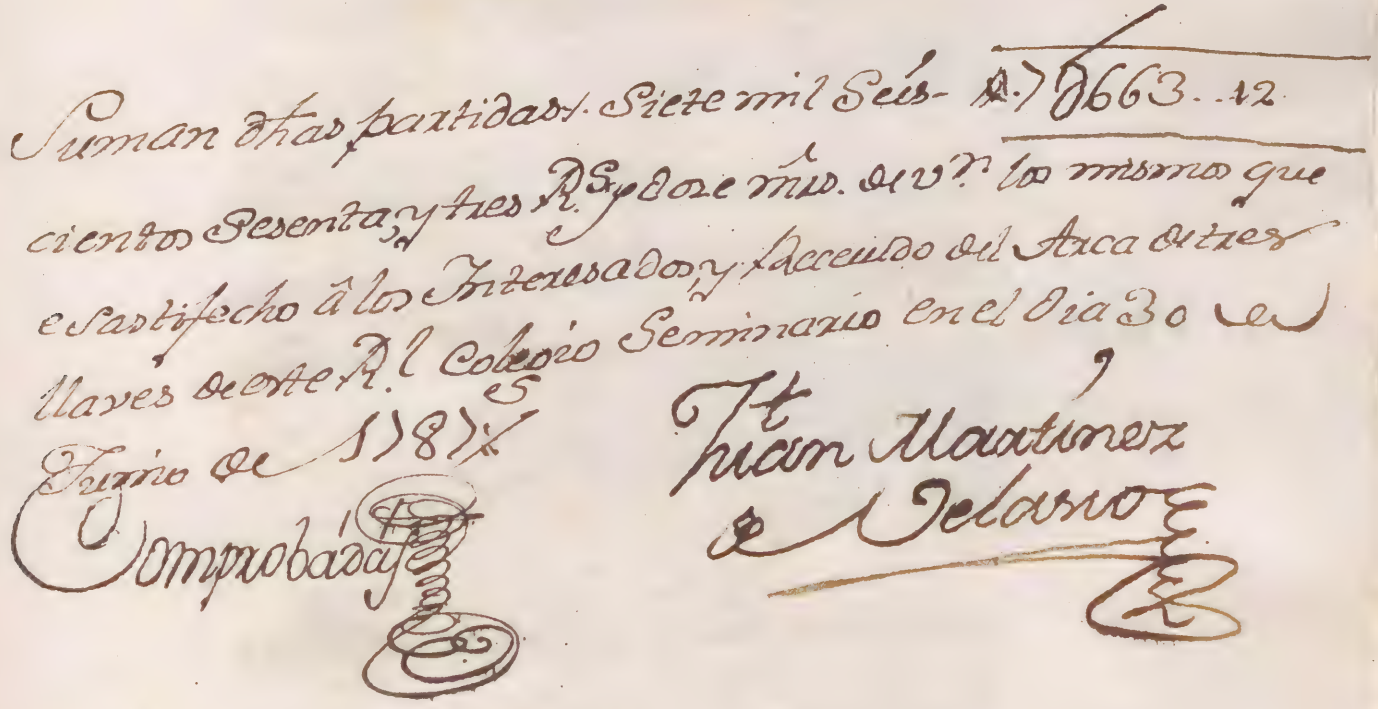 Suman dhas partidas. Siete mil Seis- R.7U663..12
cientos Sesenta, y tres R.s y doze mrs. de v.n los mismos que
e Sastifecho â los Interesados, y Recceuido del Arca de tres
llaves de este R.l Colegio Seminario en el dia 30 de
Junio de 1787
Juan Martinez
de Velasco
Comprobadas